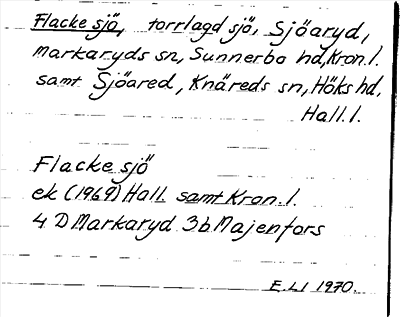 Flacke sjö, torrlagd sjö, Sjöaryd,
Markaryds sn, Sunnerbo hd, Kron.l.
samt Sjöared, Knäreds sn, Höks hd,
Hall.l.
Flacke sjö
ek (1969) Hall. samt Kron.l.
4 D Markaryd 3b Majenfors
E.LI 1970.